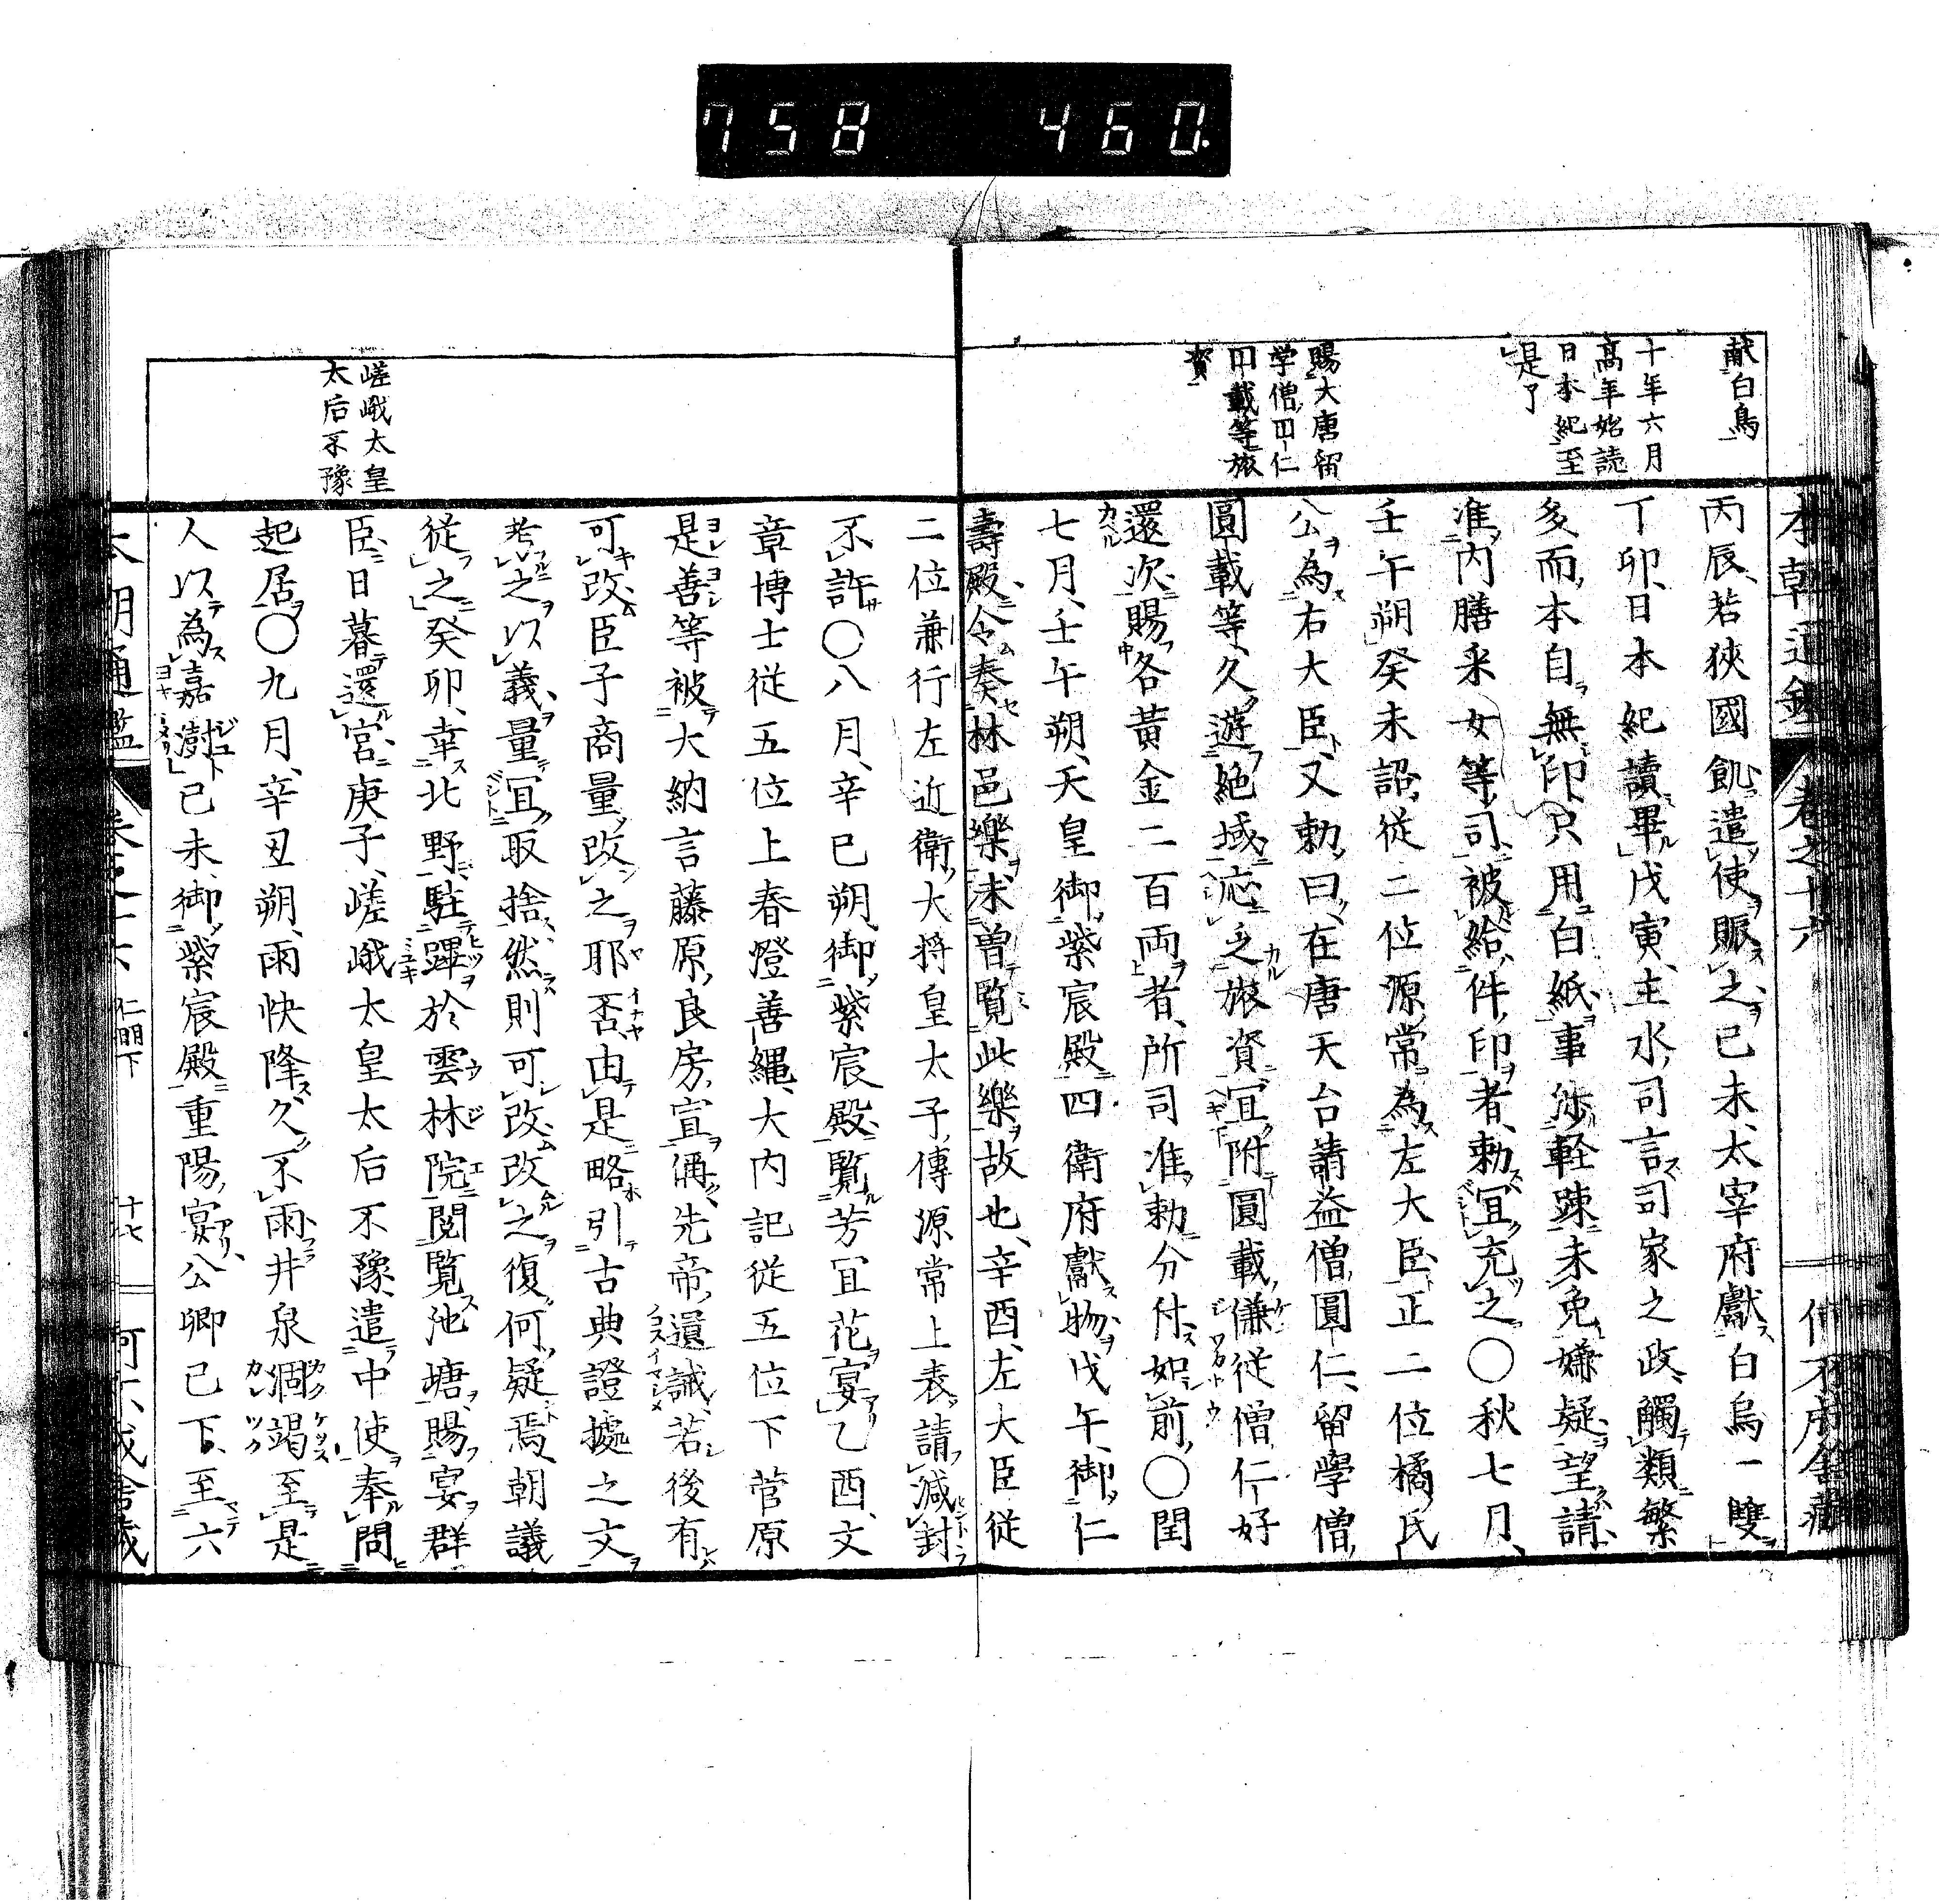 758 460.
献白烏
十年六月
高年始読
日本紀至
是了
賜大唐留
学僧円仁
円載等旅
資
本朝通鑑 卷之十六
丙辰、若狹國飢遣使賑之、己未、太宰府獻白烏一雙
丁卯、日本紀讀畢、戊寅、主水司言、司家之政、觸類繁
多、而本自無印、只用白紙、事渉輕踈、未免嫌疑、望請
准内膳采女等司、被給件印者、勅宜充之、〇秋七月、
壬午朔、癸未、詔從二位源常為左大臣、正二位橘氏
公為右大臣、又勅曰、在唐天台請益僧圓仁、留學僧
圓載等、久遊絶域、応乏旅資、宜附圓載、傔従僧仁好
還次、賜各黃金二百両者、所司准勅分付如前、〇閏
七月、壬午朔、天皇御紫宸殿、四衛府獻物、戊午、御仁
壽殿、令奏林邑樂、未曽覧此樂故也、辛酉、左大臣従
嵯峨太皇
太后不豫
二位兼行左近衛大将皇太子傳源常上表、請減封
不許、〇八月、辛巳朔、御紫宸殿、覧芳宜花宴、乙酉、文
章博士従五位上春澄善縄、大内記従五位下菅原
是善等、被大納言藤原良房宣偁、先帝遺誡、若後有
可改、臣子商量、改之耶否、由是略引古典證據之文
考之以義、量宜取捨、然則可改、改之、復何疑焉、朝議
従之、癸卯、幸北野、駐蹕於雲林院、閲覧池塘、賜宴群
臣、日暮還宮、庚子、嵯峨太皇太后不豫、遣中使奉問
起居、〇九月、辛丑朔、雨快降、久不雨、井泉涸竭、至是
人以為嘉澍、己未、御紫宸殿、重陽宴、公卿已下、至六
本朝通鑑 卷之十六 仁明下 十七